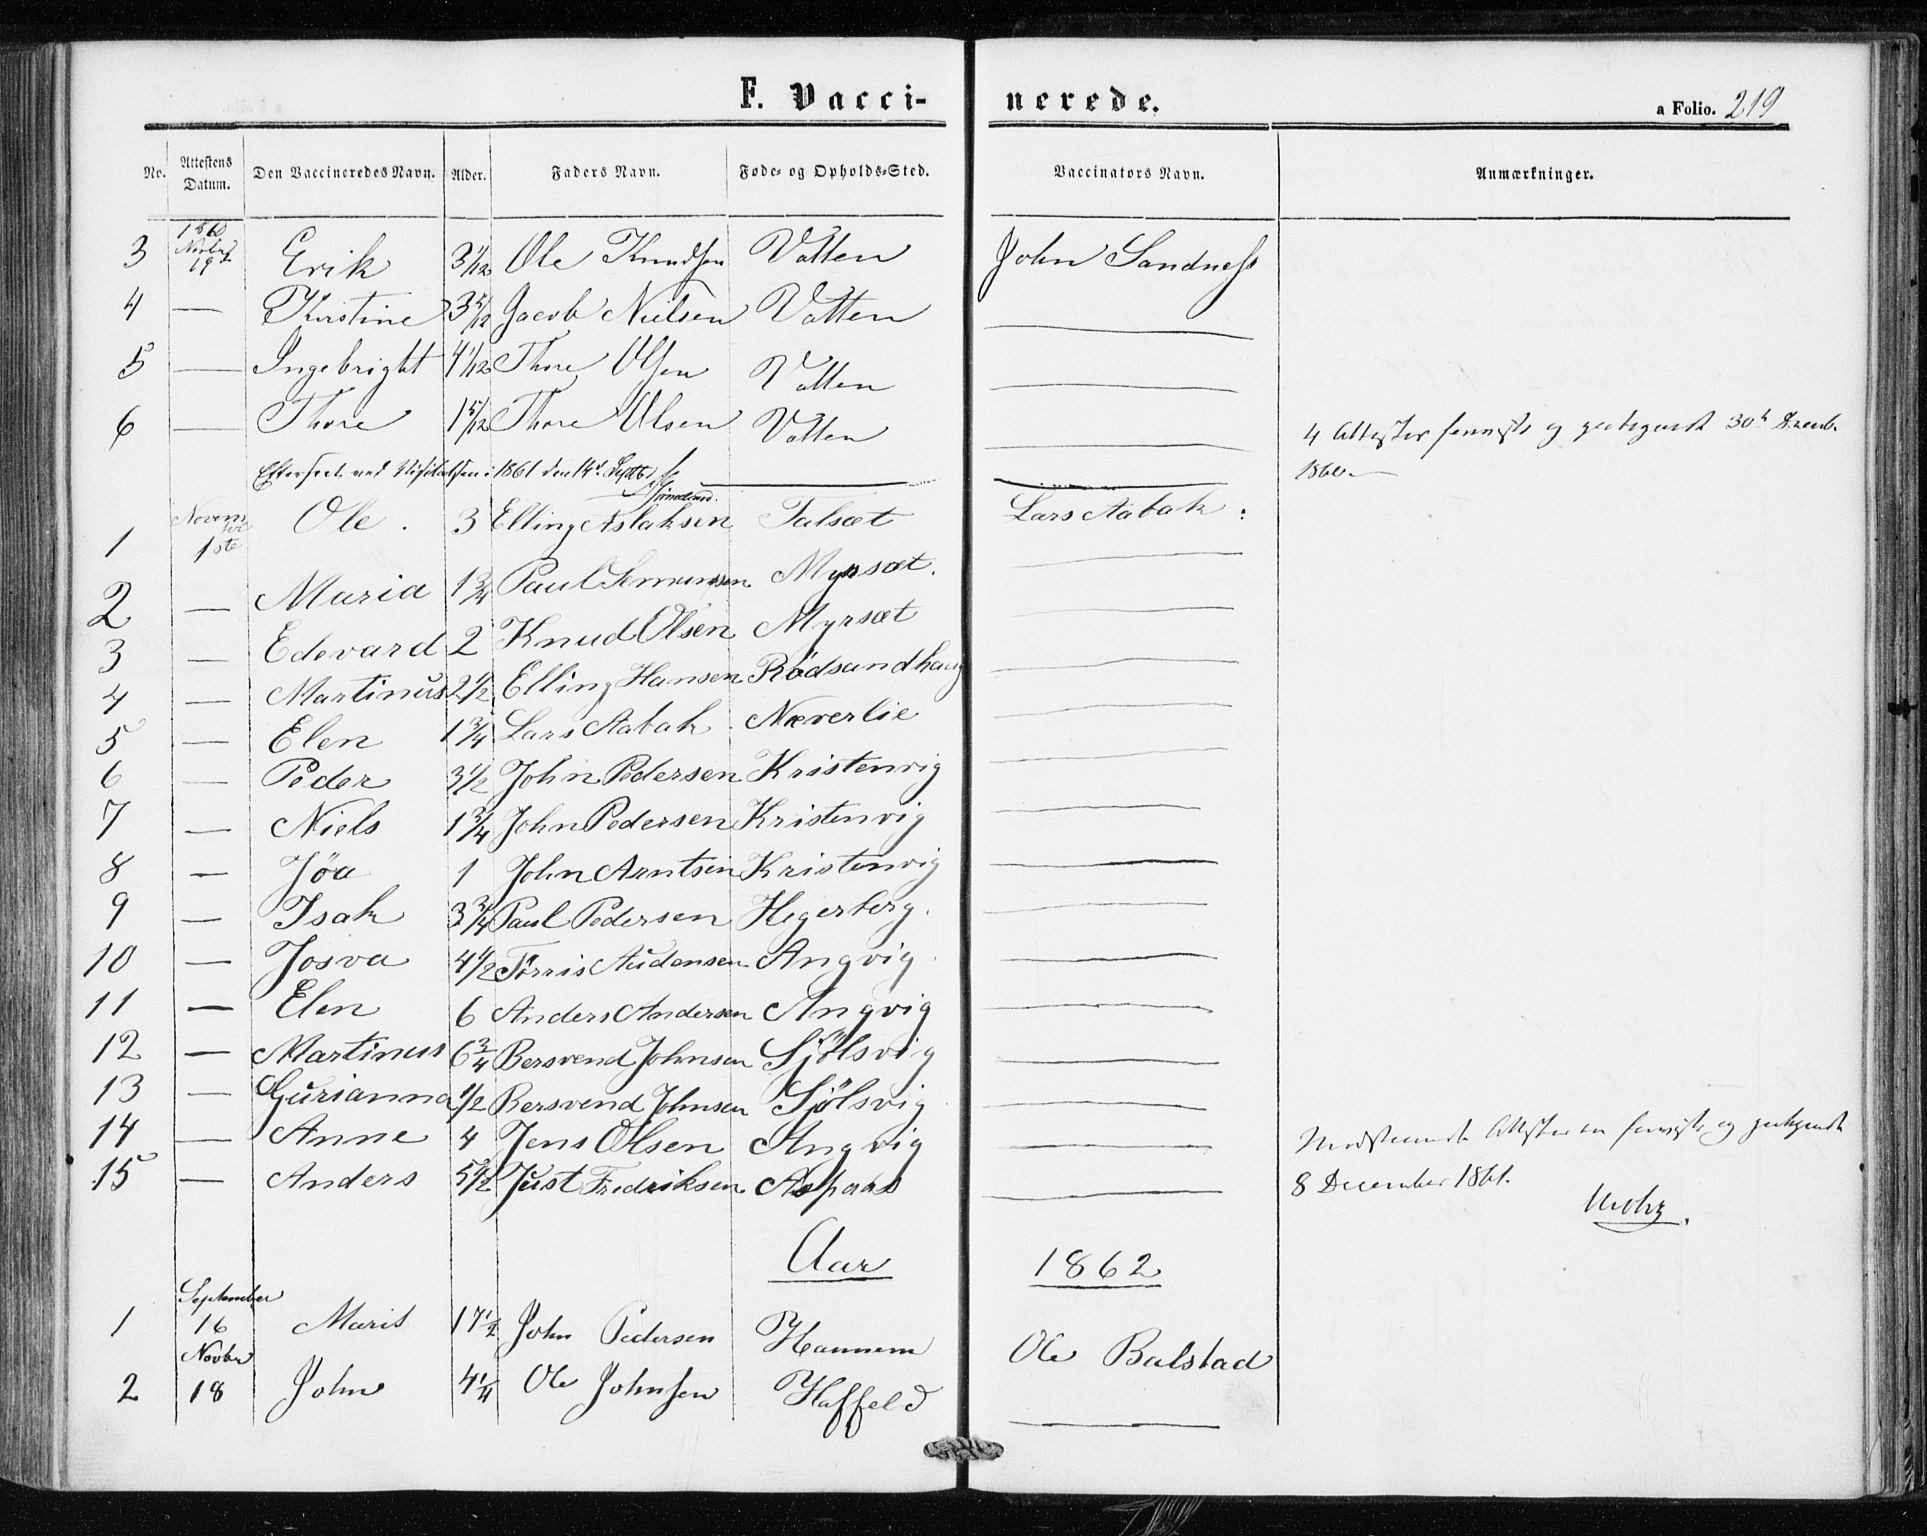 F. Vacci- nerede. a Folio. 219
No. Attestens Datum. Den Vaccineredes Navn. Alder. Faders Navn. Føde- og Opholds-Sted. Vaccinators Navn. Anmærkninger.
1860
3 Novbr 19 Erik 3 1/12 Ole Knudsen Vatten John Sandness
4 — Kirstine 3 5/12 Jacob Nielsen Vatten —
5 — Ingebright 4 1/12 Thore Olsen Vatten —
6 — Thore 1 5/12 Thore Olsen Vatten — 4 Attester foreviste og godtgjorte 30te Decemb.
1860.
Efterseet ved Visitatsen 1861 den 14d. Septb.
1 November 1ste Ole. 3 Elling Aslaksen Talsæt Lars Aabak:
2 — Maria 1 3/4 Paul Simensen Myrsæt. —
3 — Edevard 2 Knud Olsen Myrsæt —
4 — Martinus 2 1/2 Elling Hansen Rødsandhaug —
5 — Elen 1 3/4 Lars Aabak Næverlie —
6 — Peder 3 1/2 John Pedersen Kristenvig —
7 — Niels 1 3/4 John Pedersen Kristenvig —
8 — Jöa 1 John Arntsen Kristenvig —
9 — Isak 3 3/4 Paul Pedersen Hegerberg. —
10 — Josva 4 1/2 Törris Audensen Angvig. —
11 — Elen 6 Anders Andersen Angvig —
12 — Martinus 6 3/4 Bersvend Johnsen Sjölsvig —
13 — Gurianna 1/2 Bersvend Johnsen Sjölsvig —
14 — Anne 4 Jens Olsen Angvig — Attester er foreviste og godtgjorte
15 — Anders 5 1/2 Just Fredriksen Aspaas — 8 December 1861.
Aar 1862
1 September 16 Marit 17 1/2 John Pedersen Hannem Ole Balstad
2 Novbr 18 John 4 1/4 Ole Johnsen Haffeld —